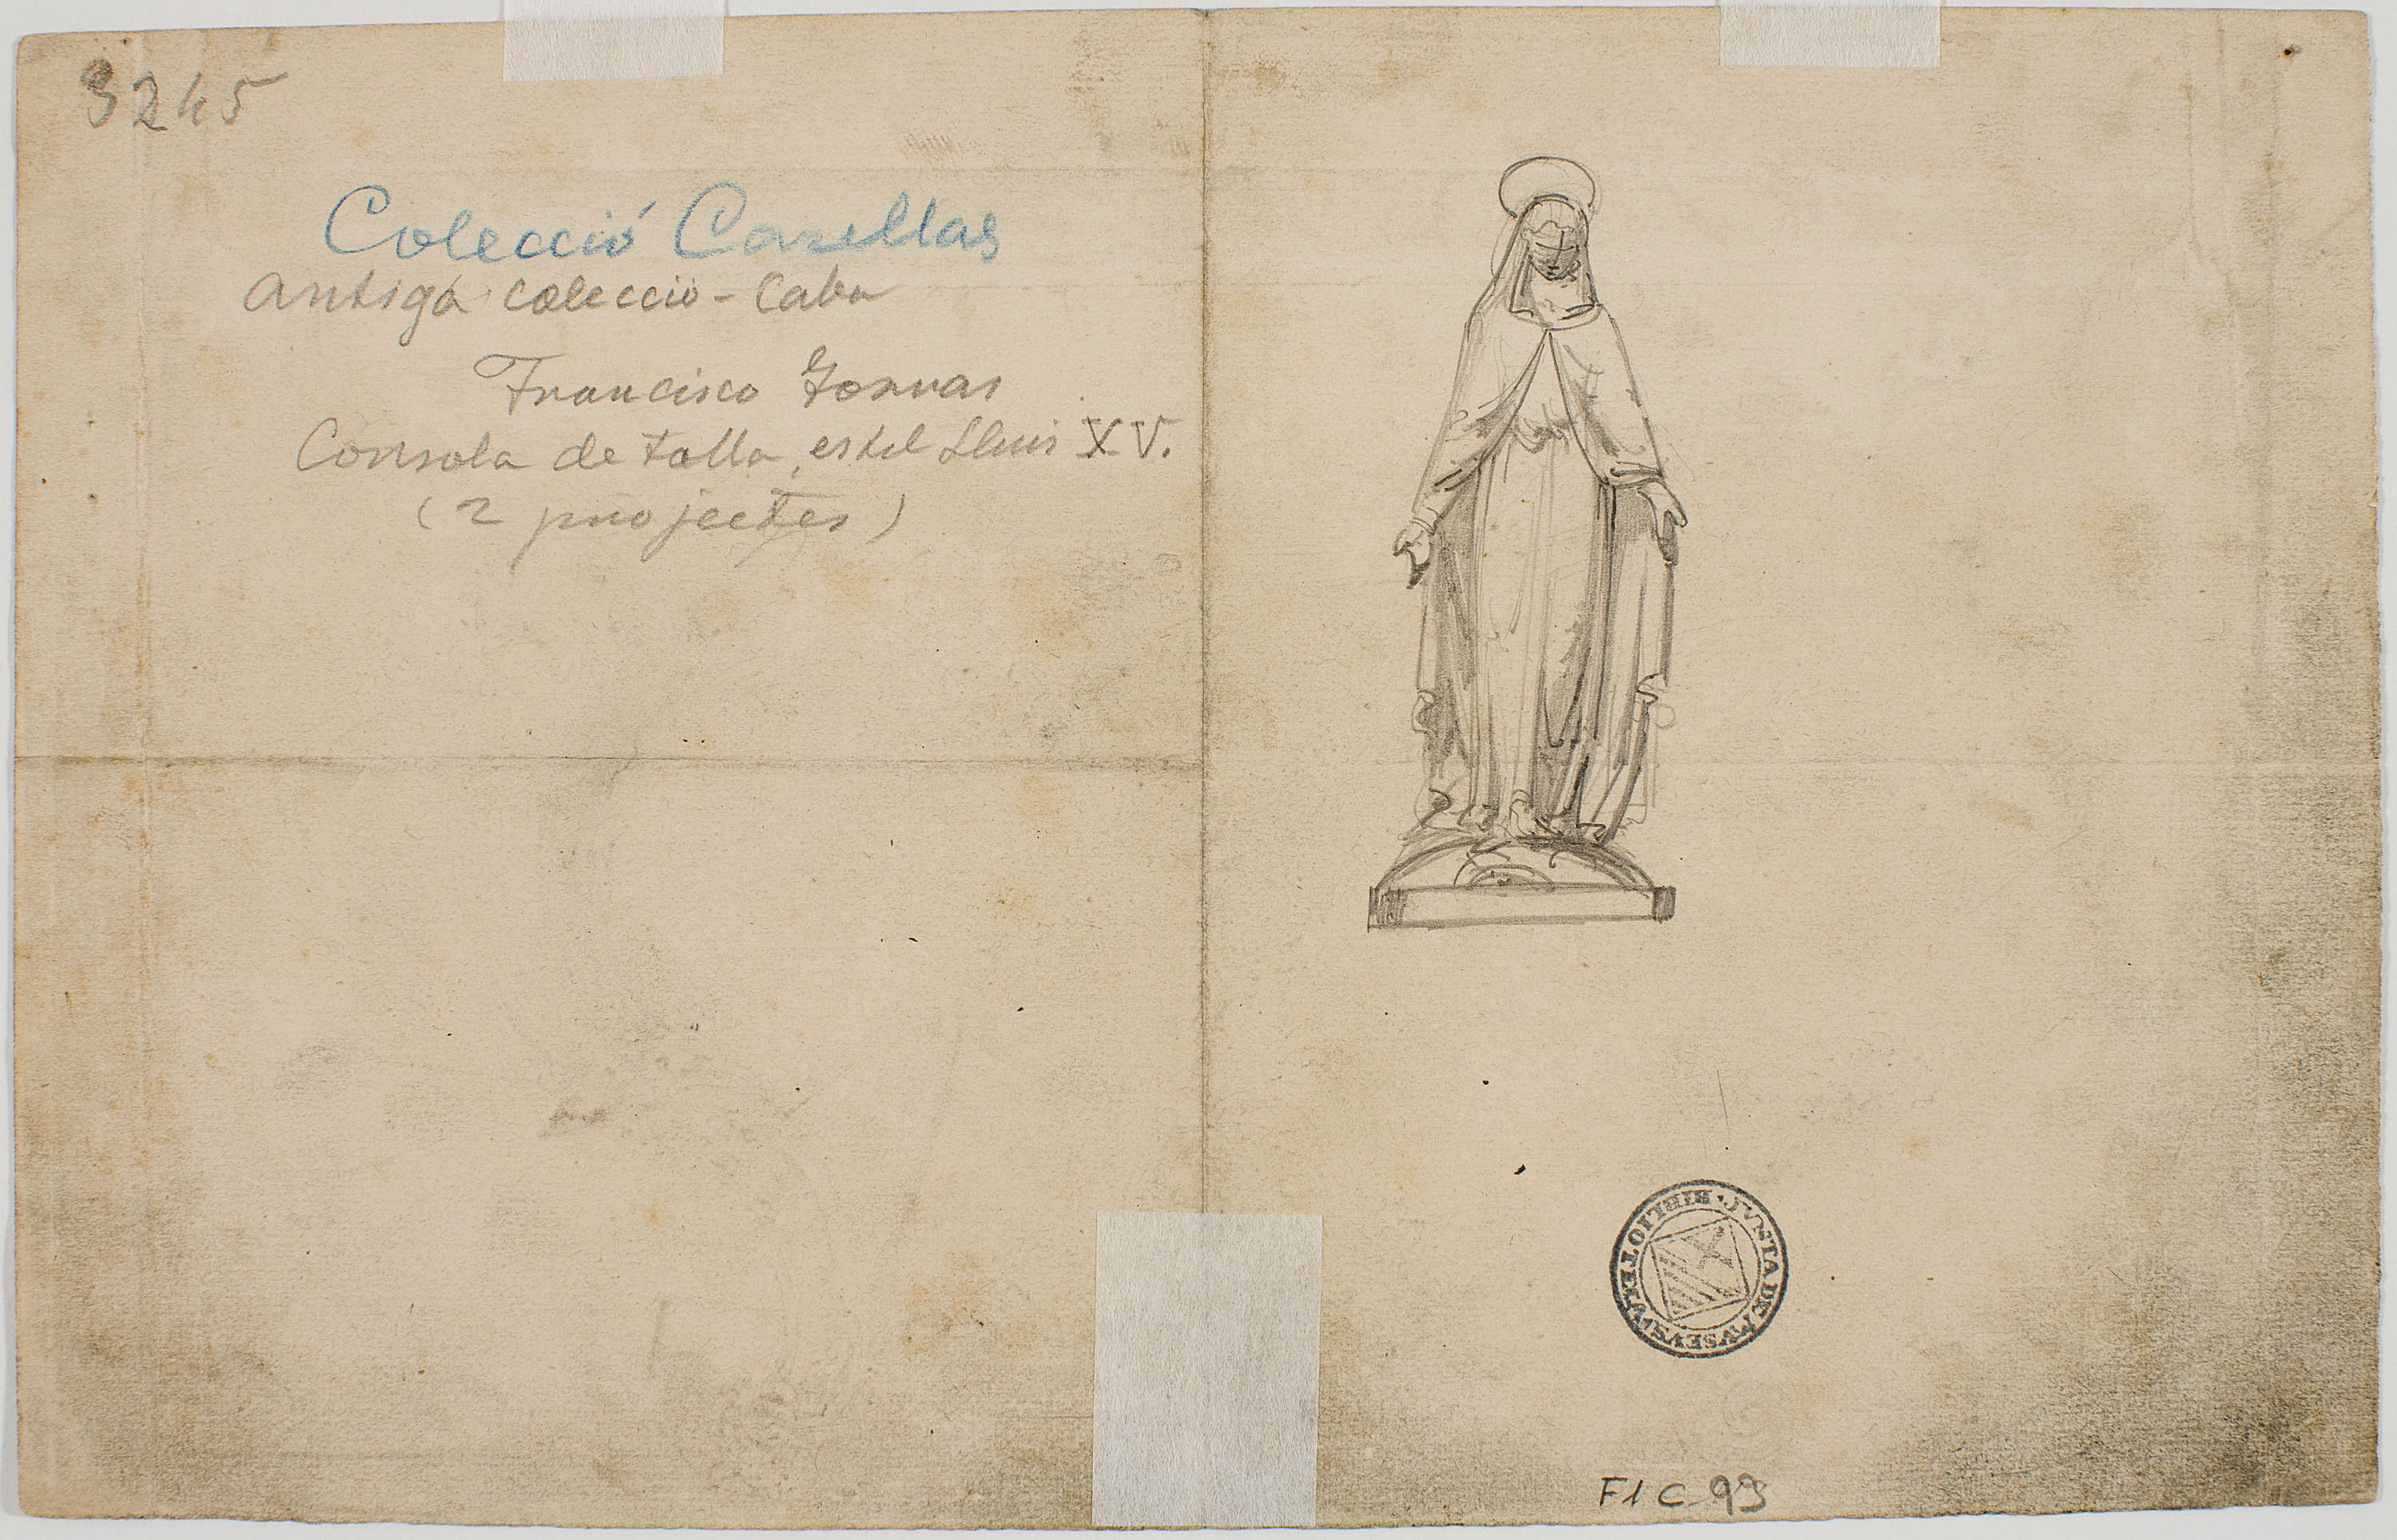 3245
Colecció Casellas
Antiga colecció - Caba
Francisco Tornas
Consola de talla, estil Lluis XV.
(2 projectes)
BIBLIOTEKA · JVNTA DE MVSEVS
F1 C 93